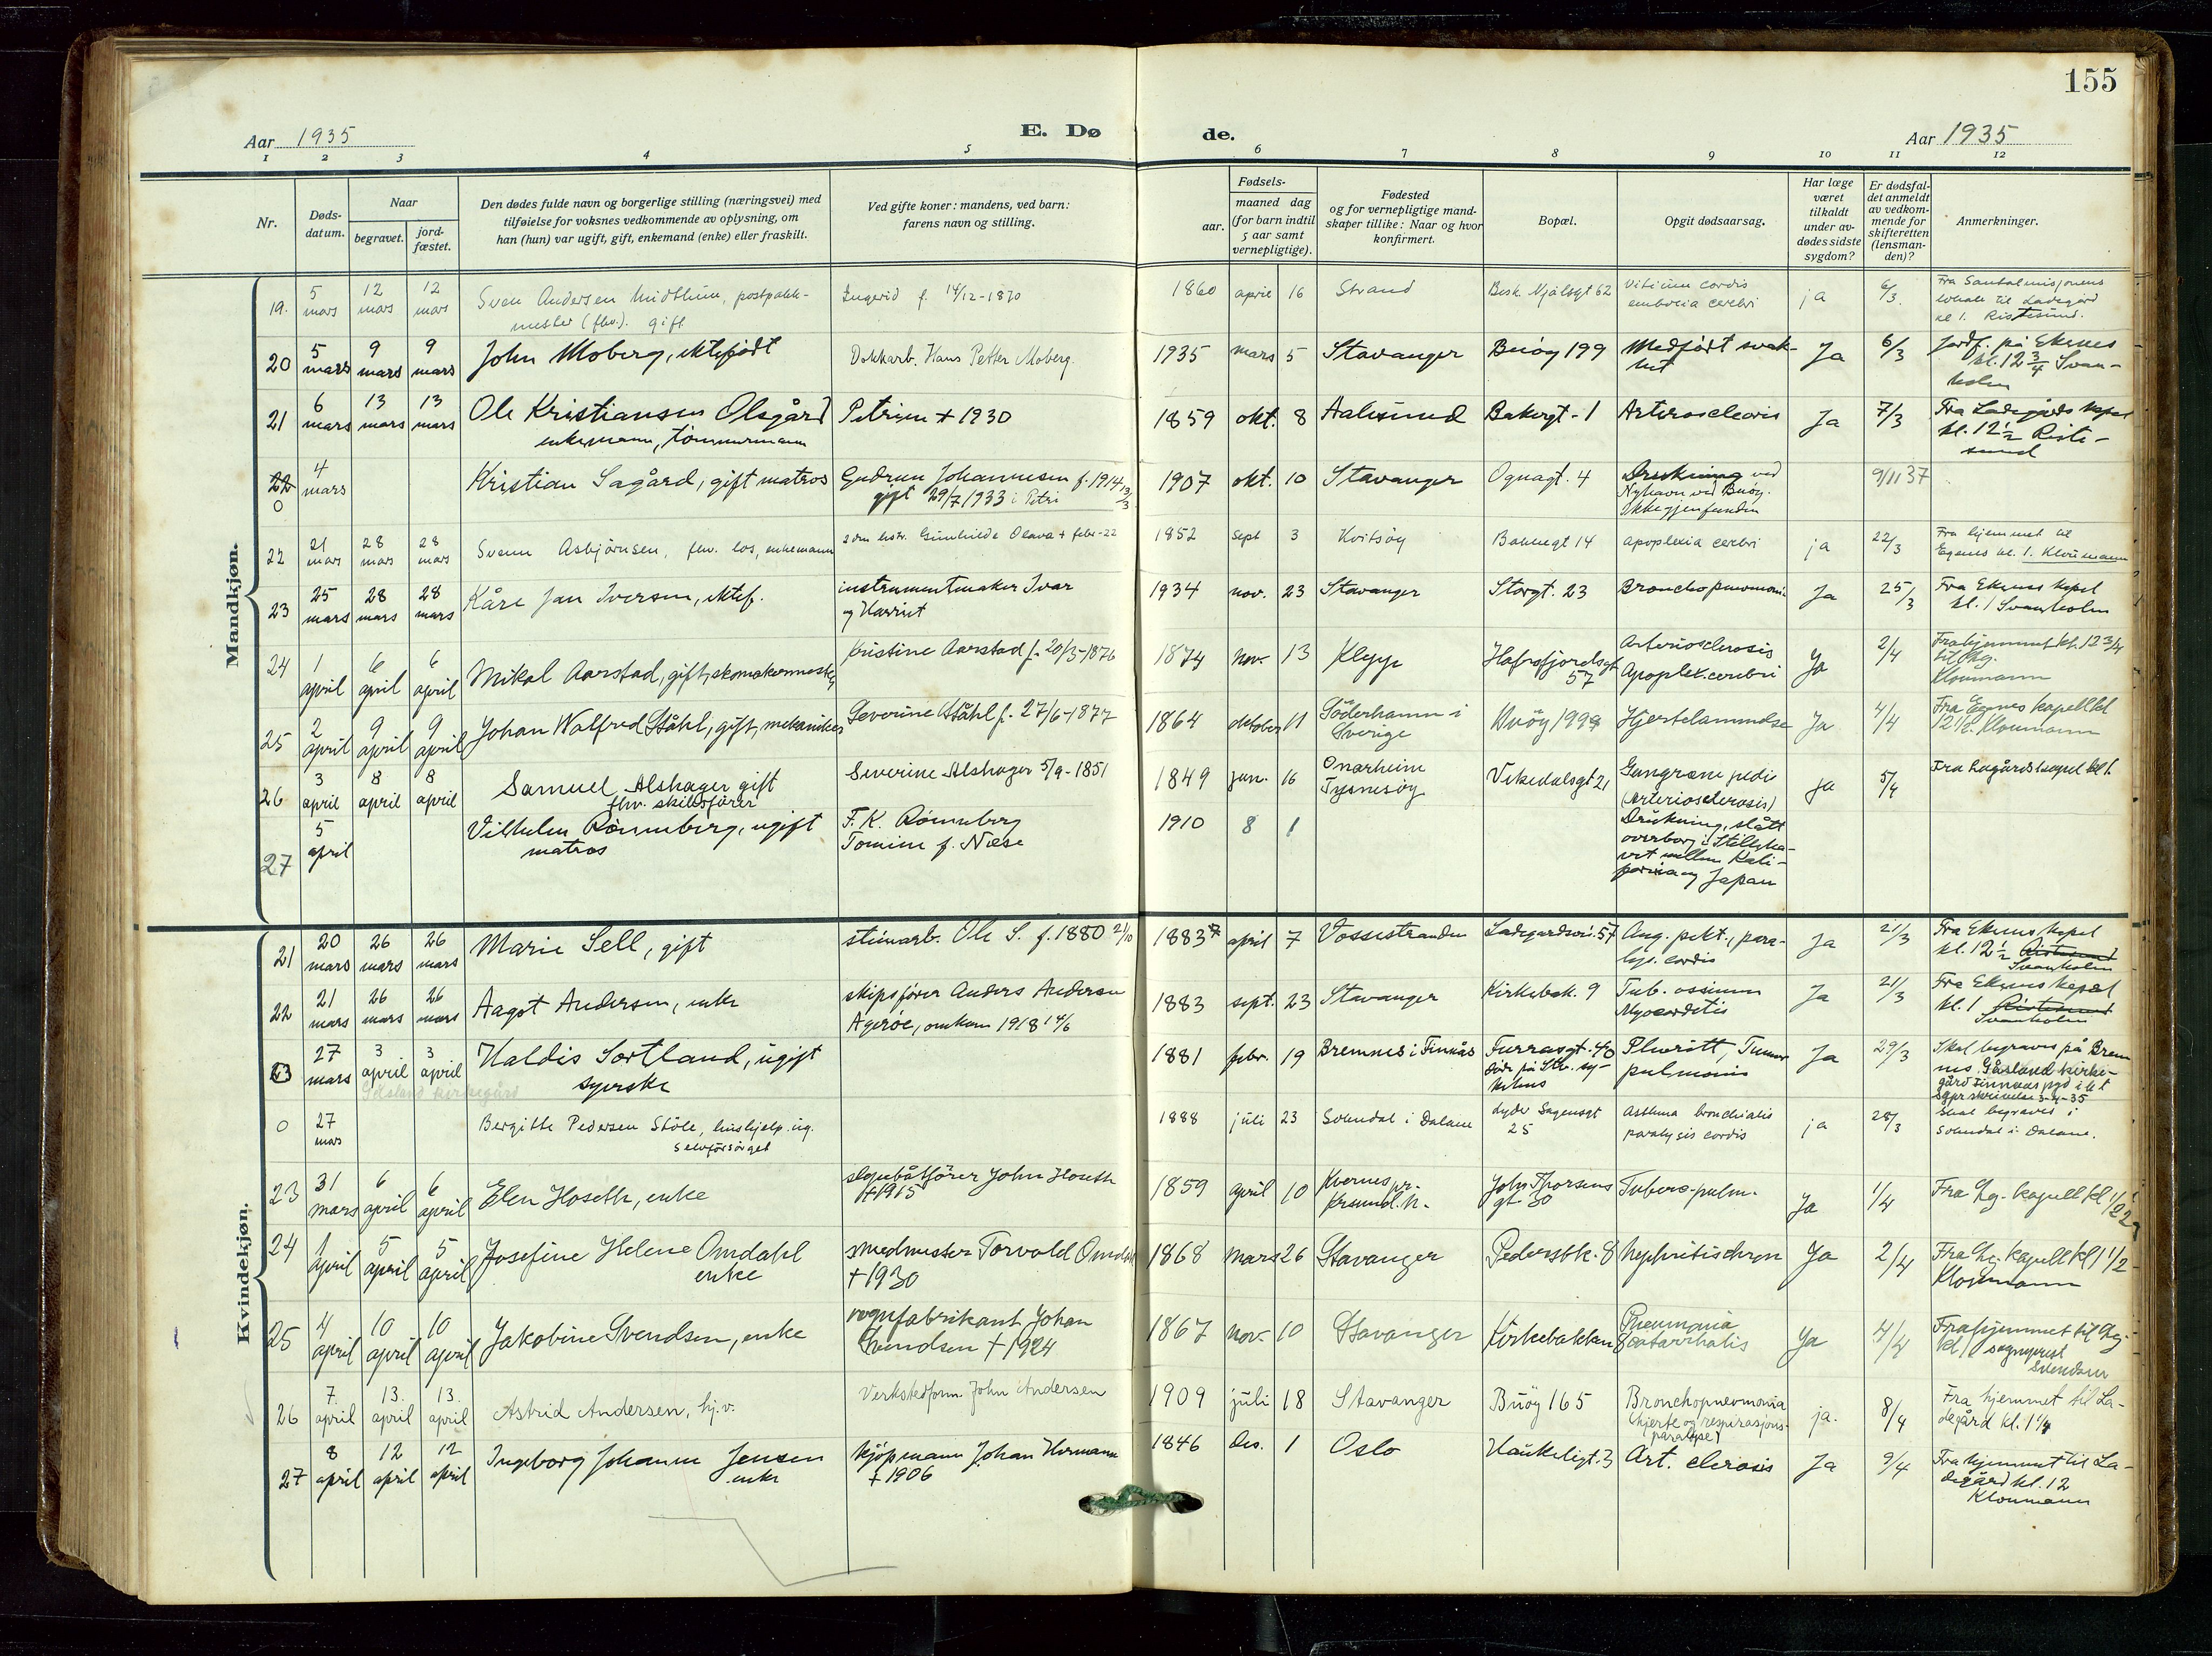 155
Aar 1935 E. Dø de. Aar 1935
1 2 3 4 5 6 7 8 9 10 11 12
Nr.
Døds-
datum.
Naar
begravet.
jord-
fæstet.
Den dødes fulde navn og borgerlige stilling (næringsvei) med
tilføielse for voksnes vedkommende av oplysning, om
han (hun) var ugift, gift, enkemand (enke) eller fraskilt.
Ved gifte koner: mandens, ved barn:
farens navn og stilling.
Fødsels-
aar.
maaned dag
(for barn indtil
5 aar samt
vernepligtige).
Fødested
og for vernepligtige mand-
skaper tillike: Naar og hvor
konfirmert.
Bopæl.
Opgit dødsaarsag.
Har læge
været
tilkaldt
under av-
dødes sidste
sygdom?
Er dødsfal-
det anmeldt
av vedkom-
mende for
skifteretten
(lensman-
den)?
Anmerkninger.
Mandkjøn.
19. 5 mars 12 mars 12 mars
Sven Andersen Midthun, postpakk-
mester (fhv.). gift
Ingerid f. 14/12-1870
1860 april 16 Strand Besk. Njålsgt 62
Vitium cordis
embolia cerebri
ja 6/3.
Fra Santalmisjonens
lokale til Ladegård
kl 1. Ristesund.
20 5 mars 9 mars 9 mars
John Moberg, ektefødt
Dokkarb. Hans Petter Moberg.
1935 mars 5 Stavanger Buøy 199
Medfødt svak-
het
Ja 6/3
Jordf. på Ekenes
kl. 12 3/4 Svan-
holm
21 6 mars 13 mars 13 mars
Ole Kristiansen Olsgård
enkemann, tømmermann
Petrine + 1930
1859 okt. 8 Aalesund Bakergt. 1 Arterosclerois Ja 7/3
Fra Ladegårds kapel
kl. 12 1/2 Riste-
sund
22 0 4 mars
Kristian Sagård, gift matros
Gudrun Johannesen f. 1914 19/3
gift 29/7 1933 i Petri
1907 okt. 10 Stavanger Ognagt. 4
Drukning ved
Nyhavn ved Buøy.
Ikke gjenfunden
9/11 37
22 21 mars 28 mars 28 mars
Svenn Asbjørnsen, fhv. los, enkemann
2den hstr. Gunhilde Olava + febr-22
1852 sept 3 Kvitsøy Bakkegt 14 apoplexia cerebri ja 22/3
Fra hjemmet til
Egenes kl. 1. Kloumann
23 25 mars 28 mars 28 mars
Kåre Jan Iversen, ektef.
instrumentmaker Ivar
og Harriet
1934 nov. 23 Stavanger Storgt. 23 Bronchopneumoni. Ja 25/3
Fra Ekenes kapel
kl. 1 Svanholm
24 1 april 6 april 6 april
Mikal Aarstad, gift, skomakermester
Kristine Aarstad f. 20/3-1876
1874 nov. 13 Klepp
Hafrsfjordsgt
57
Arteriosclerosis
Apoplex. cerebri
Ja 2/4
Fra hjemmet kl. 12 3/4
til Lg.
Kloumann
25 2 april 9 april 9 april
Johan Walfred Ståhl, gift, mekaniker
Severine Ståhl f. 27/6-1877
1864 oktober 11
Söderhamn i
Sverige
Buøy 199a Hjertelammelse Ja 4/4
Fra Egnes kapell kl
12 1/2. Kloumann
26 3 april 8 april 8 april
Samuel Alshager gift
fhv. skibsfører
Severine Alshager 5/9-1851
1849 jan. 16
Onarheim
Tysnesøy
Vikedalsgt 21
Gangræne pedis
(Arteriosclerosis)
ja 5/4
Fra Lagårds kapel kl 1.
27 5 april
Vilhelm Rønneberg, ugift
matros
F. K. Rønneberg
Tomine f. Næse
1910 8 1
Drukning, slått
overbord i Stilleha-
vet mellem Kali-
fornia og Japan
Kvindekjøn.
21 20 mars 26 mars 26 mars
Marie Sell, gift
stuearb. Ole S. f. 1880 21/10
1883 april 7 Vossestranden Ladegardsvei. 57
Ang. pekt., para-
lys. cordis
Ja 21/3
Fra Ekenes kapel
kl. 12 1/2 Ristesund
Svanholm
22 21 mars 26 mars 26 mars
Aagot Andersen, enke
skipsfører Anders Andersen
Agerøe, omkom 1918 14/6
1883 sept. 23 Stavanger Kirkebak. 9
Tub. ossium
Myocarditis
Ja 21/3
Fra Ekenes kapel
kl. 1 Ristesund
Svanholm
23 27 mars 3 april 3 april
Geisland kirkegård
Haldis Sortland, ugift
syerske
1881 febr. 19 Bremnes i Finnås
Furrasgt. 40
døde på Stv. sy-
kehus
Plevritt, Tumor
pulmonis
Ja 29/3
Skal begraves på Brem
nes. Gåsland kirke-
gård Finnaas pgd i flt
Sgpr skrivelse 3-4-35
0 27 mars
Bergitte Pedersen Støle, hushjelp. ug.
selvforsørget
1888 juli 23 Sokndal i Dalane
dyder Sagensgt
25
Asthma bronchialis
paralysis cordis
ja 28/3
Skal begraves i
Sokndal i Dalane.
23 31 mars 6 april 6 april
Elen Hoseth, enke
slepebåtfører John Hoseth
+ 1915
1859 april 10
Kvernes pr.
Kristiansund N.
John Thorsens
gt. 30
Tuberc. pulm. Ja 1/4
Fra Lg. kapell kl 1/2 2
24 1 april 5 april 5 april
Josefine Helene Omdahl
enke
smedmester Torvald Omdahl
+ 1930
1868 mars 26 Stavanger Pedersbk. 8 Nephritis chron Ja 2/4
Fra Lg. kapell kl 1 1/2
Kloumann
25 4 april 10 april 10 april
Jakobine Svendsen, enke
vognfabrikant Johan
Svendsen + 1924
1867 nov. 10 Stavanger Kirkebakken 8
Pneumonia
catarrhalis
Ja 4/4
Fra hjemmet til Lg.
kl 1 sogneprest
Svendsen
26 7. april 13. april 13. april
Astrid Andersen, hj.v.
Verkstedform. John Andersen
1909 juli 18 Stavanger Buøy 165
Bronchopneumonia
(hjerte og respirasjons-
paralyse)
ja. 8/4
Fra hjemmet til La-
degård kl. 1 1/4
27 8 april 12 april 12 april
Ingeborg Johanne Jensen
enke
kjøpmann Johan Hermann
+ 1906
1846 des. 1 Oslo Haukeligt. 3 Art. clerosis Ja 9/4
Fra hjemmet til La-
degård kl. 12
Kloumann